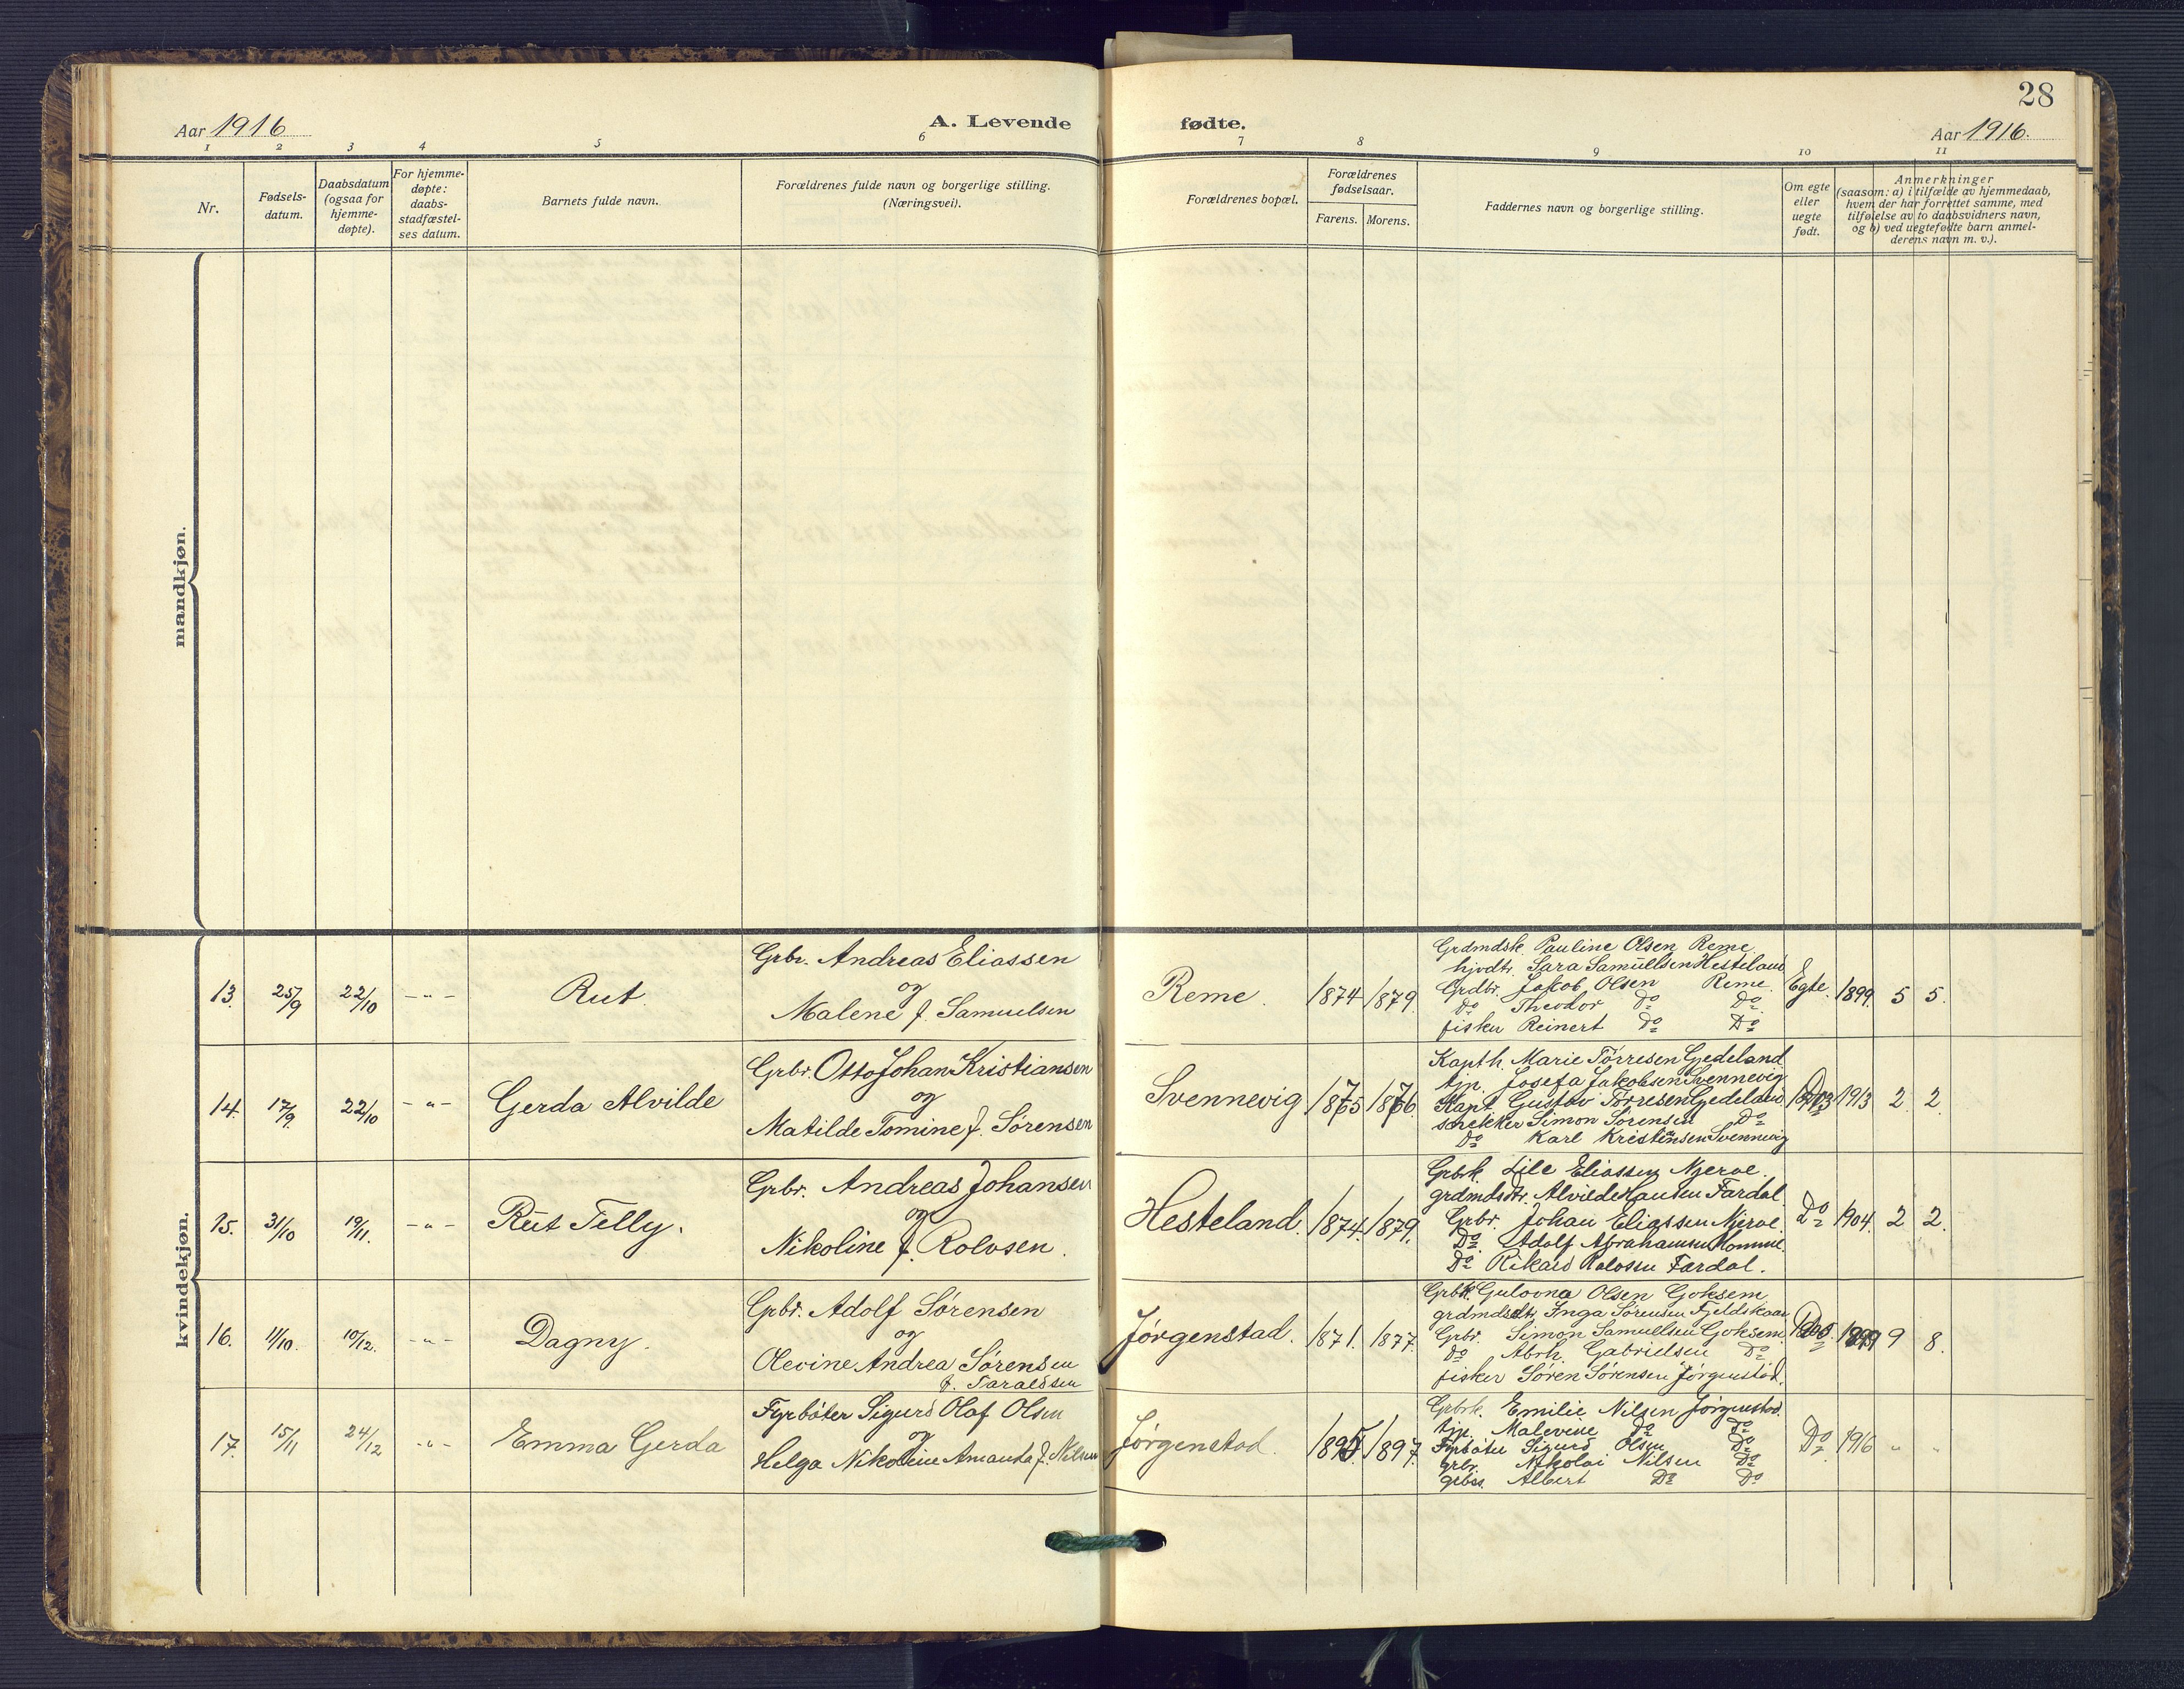 28
Aar 1916
A. Levende fødte.
Aar 1916.
1 2 3 4 5 6 7 8 9 10 11
Nr.
Fødsels-
datum.
Daabsdatum
(ogsaa for
hjemme-
døpte).
For hjemme-
døpte:
daabs-
stadfæstel-
ses datum.
Barnets fulde navn.
Forældrenes fulde navn og borgerlige stilling.
(Næringsvei).
Forældrenes bopæl.
Forældrenes
fødselsaar.
Farens. Morens.
Faddernes navn og borgerlige stilling.
Om egte
eller
uegte
født.
Anmerkninger
(saasom: a) i tilfælde av hjemmedaab,
hvem der har forrettet samme, med
tilføielse av to daabsvidners navn,
og b) ved uegtefødte barn anmel-
derens navn m. v.).
mandkjøn.
kvindekjøn.
13. 25/9 22/10 - " - Rut.
Grbr. Andreas Eliassen
og
Malene f. Samuelsen
Reme. 1874 1879.
Grdmdsk. Pauline Olsen Reme
hjvdtr. Sara Samuelsen Hesteland
Grdbr. Jakob Olsen Reme.
do Theodor do Do
fisker Reinert do Do
Egte. 1899. 5 5.
14. 17/9. 22/10 - " - Gerda Alvilde
Grbr. Otto Johan Kristiansen
og
Matilde Tomine f. Sørensen
Svennevig
Kapth. Marie Tørresen Gjedeland
tjp. Josefa Jakobsen Svennevig
Kapt. Gustav Tørresen Gjedeland
Simon Sørensen Do
Do Karl Kristensen Svennevig
1913 2. 2.
15. 31/10 19/11. - " - Rut Telly.
Grbr. Andreas Johansen
og
Nikoline f. Rolvsen.
Hesteland. 1874. 1879.
Grbrk. Lile Eliassen Njerve.
grdmdsdtr. Alvilde Hansen Fardal
Grbr. Johan Eliassen Njerve.
Do. Adolf Abrahamsen Homme.
Do Rikard Rolvssen Fardal.
Do 1904. 2 2.
16. 11/10. 10/12. - " - Dagny.
Grbr. Adolf Sørensen
og
Olevine Andrea Sørensen
f. Taraldsen
Jørgenstad. 1871. 1877.
Grbrk. Gulovna Olsen Goksem
grdmdsdtr. Inga Sørensen Fjeldskaar
Grbr. Simon Samuelsen Goksem
do Abrh. Gabrielsen Do
fisker Søren Sørensen Jørgenstad.
9 8.
17. 15/11 24/12 - " - Emma Gerda
Fyrbøter Sigurd Olaf Olsen
og
Helga Nikoline Amanda f. Nilsen
Jørgenstad. 1895. 1897.
Grbrk. Emilie Nilsen Jørgenstad.
tjp. Malevine Do Do
Fyrbøter Sigurd Olsen Do
grbr. Nikolai Nilsen Do
grbss. Albert Do Do
Do 1916 " "